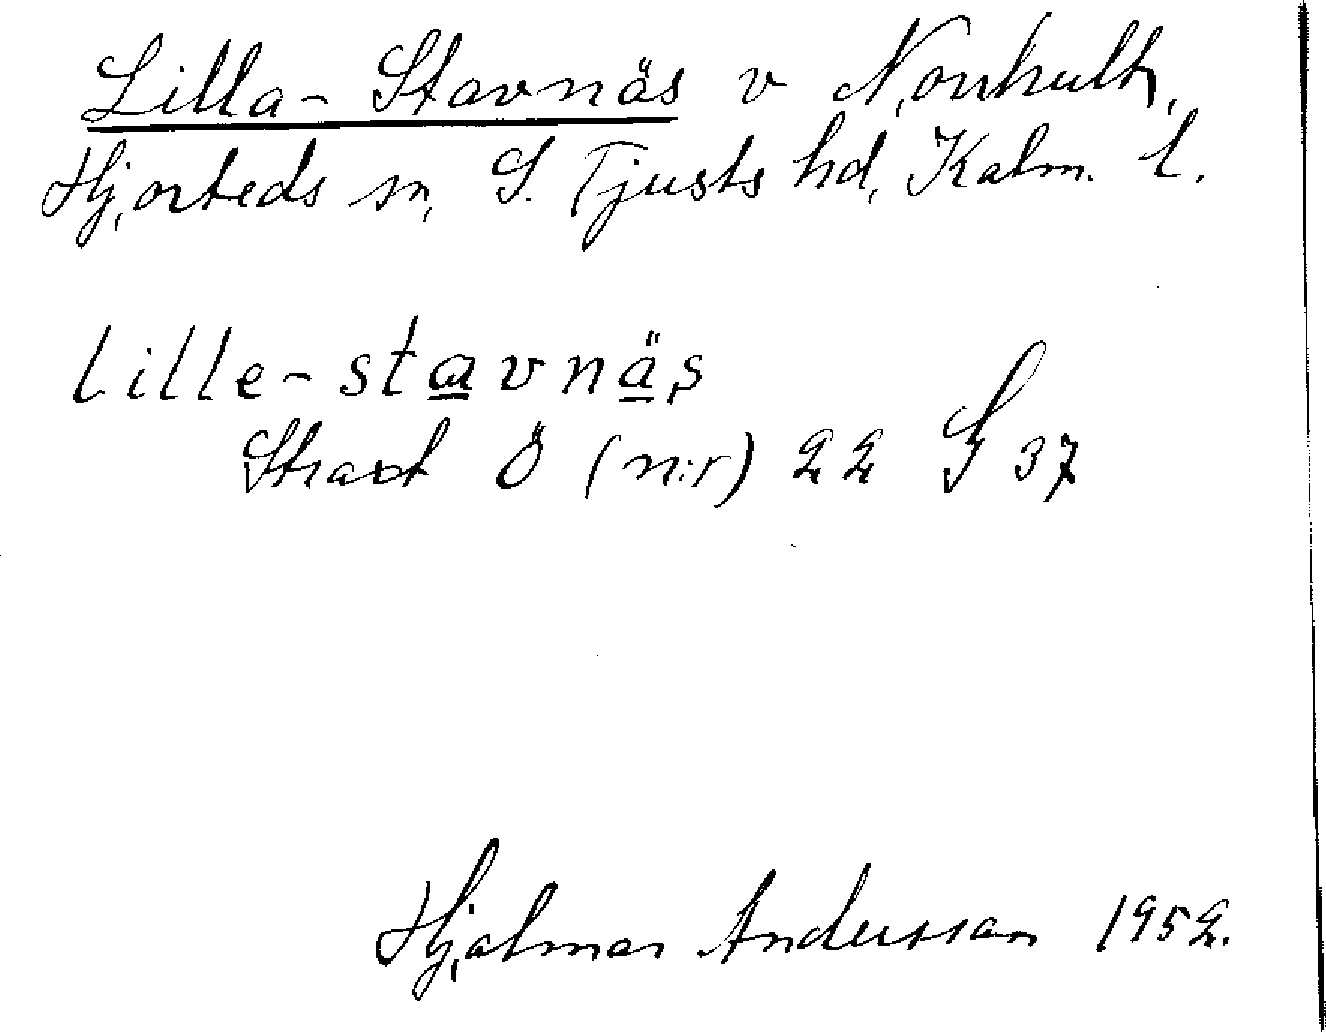 Lilla-Stavnäs v Norrhult,
Hjorteds sn, S. Tjusts hd, Kalm. l.
lille-stavnäs
Strax Ö (n:r) 22 S 37
Hjalmar Andersson 1952.